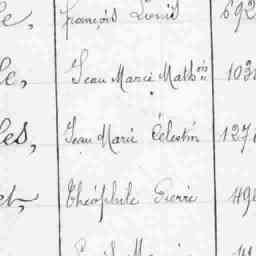 e, François Louis 692
le, Jean Marie Math.in 103
les, Jean Marie Célestin 127
et, Théophile Pierre 49